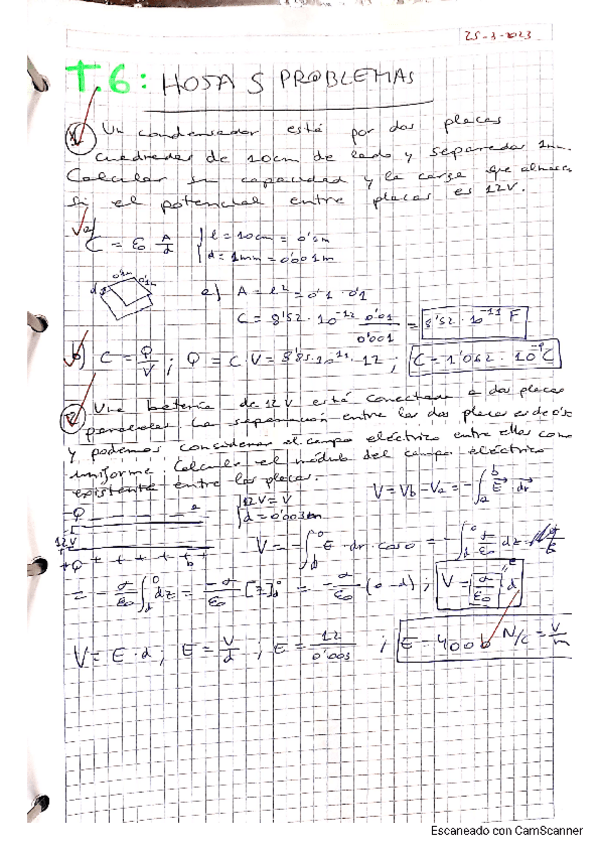 25-3-2023
T.6: HOJA 5 PROBLEMAS
1 Un condensador está por dos placas
cuadradas de 10cm de lado y separadas 1mm.
Calcular su capacidad y la carga que almacena
si el potencial entre placas es 12V.
a) C = ε0 A/d { l = 10cm = 0'1m
d = 1mm = 0'001m
d 0'1m 0'1m
A = l² = 0'1 · 0'1
C = 8'52 · 10^-12 0'01/0'001 = 8'52 · 10^-11 F
b) C = Q/V ; Q = C · V = 8'85 · 10^-11 · 12 ; C = 1'062 · 10^-9 C
2 Una batería de 12V está conectada a dos placas
paralelas. La separación entre las dos placas es de
y podemos considerar el campo eléctrico entre ellas como
uniforme. Calcular el módulo del campo eléctrico
existente entre las placas.
V = Vb - Va = -∫_a^b E · dr
-Q a
12V = V
d = 0'003m
12V
+Q + + + + + b
V = -∫_d^0 E · dr · cos0 = -∫_d^0 σ/ε0 dz
= -σ/ε0 ∫_d^0 dz = -σ/ε0 [z]_d^0 = -σ/ε0 (0-d) ; V = σ/ε0 · d
V = E · d ; E = V/d ; E = 12/0'003 ; E = 4000 N/C = V/m
Escaneado con CamScanner